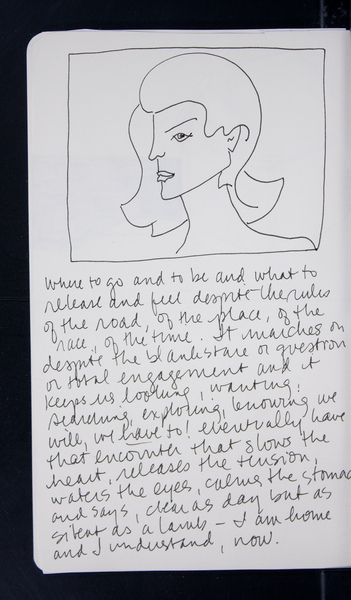 where to go and to be and what to
release and feel despite the rules
of the road, of the place, of the
race, of the time. It marches on
despite the blank stare or question
or total engagement and it
keeps us looking, wanting,
searching, exploring, knowing we
will, we have to! eventually have
that encounter that slows the
heart, releases the tension,
waters the eyes, calms the stomac
and says, clear as day but as
silent as a lamb – I am home
and I understand, now.